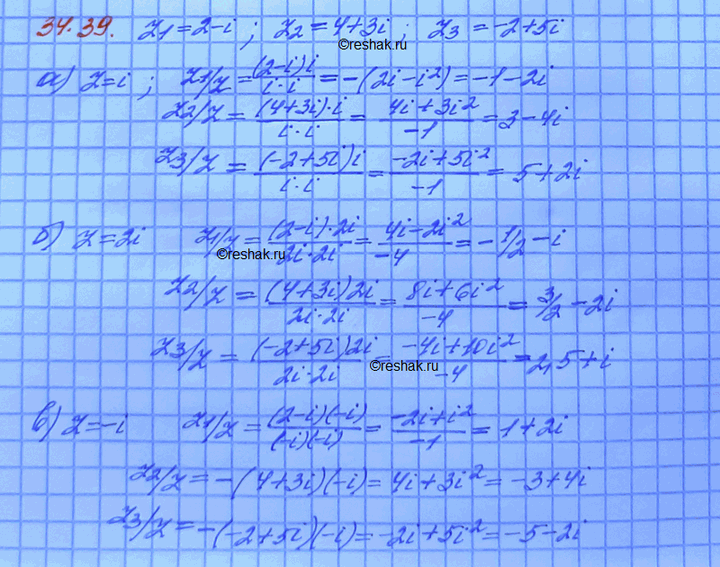 34.39. z₁=2-i; z₂=4+3i; z₃=-2+5i
©reshak.ru
а) z=i; z₁/z=(2-i)i/i·i=-(2i-i²)=-1-2i
z₂/z=(4+3i)·i/i·i=4i+3i²/-1=3-4i
z₃/z=(-2+5i)i/i·i=-2i+5i²/-1=5+2i
б) z=2i z₁/z=(2-i)·2i/2i·2i=4i-2i²/-4=-1/2-i
©reshak.ru
z₂/z=(4+3i)2i/2i·2i=8i+6i²/-4=3/2-2i
z₃/z=(-2+5i)2i/2i·2i=-4i+10i²/-4=2,5+i
©reshak.ru
в) z=-i z₁/z=(2-i)(-i)/(-i)(-i)=-2i+i²/-1=1+2i
z₂/z=-(4+3i)(-i)=4i+3i²=-3+4i
z₃/z=-(-2+5i)(-i)=-2i+5i²=-5-2i